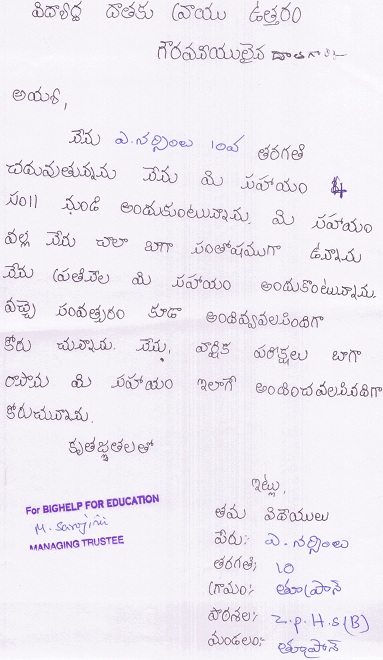 విద్యార్థి దాతకు వ్రాయు ఉత్తరం
గౌరవనీయులైన దాతగారి
అయ్యా,
నేను ఎ. నర్సింలు 10వ తరగతి
చదువుతున్నాను నేను మి సహాయం 4
సం॥ నుండి అందుకుంటున్నాను. మి సహాయం
వల్ల నేను చాలా బాగా సంతోషముగా ఉన్నాను
నేను ప్రతినెల మి సహాయం అందుకొంటున్నాను.
వచ్చే సంవత్సరం కూడా అందివ్వవలసిందిగా
కోరు చున్నాను. నేను, వార్షిక పరీక్షలు బాగా
రాసాను మి సహాయం ఇలాగే అందించవలసినదిగా
కోరుచున్నాను.
కృతజ్ఞతలతో
ఇట్లు,
తమ విదేయులు
పేరు:- ఎ. నర్సింలు
తరగతి: 10
గ్రామం: తూప్రాన్
పాఠశల: Z.P.H.S(B)
మండలం: తూప్రాన్
For BIGHELP FOR EDUCATION
M. Sarojini
MANAGING TRUSTEE